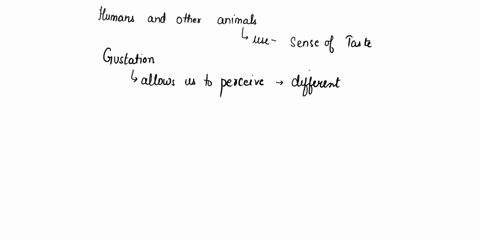 Humans and other animals
↳ use - Sense of Taste
Gustation
↳ allows us to perceive → different